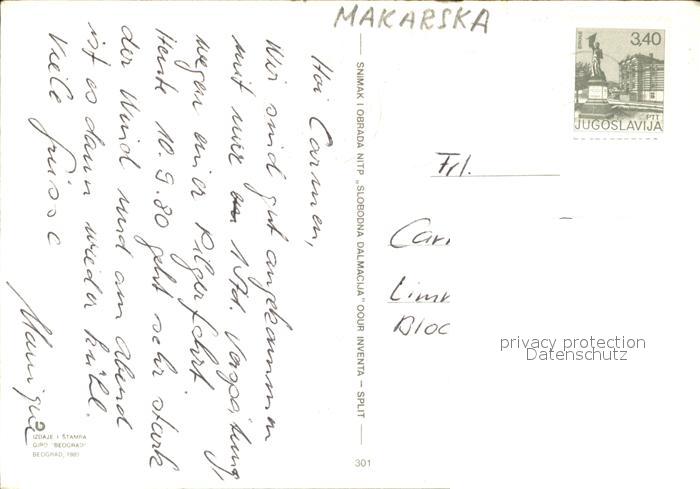 MAKARSKA
Hoi Carmen,
Wir sind gut angekommen
mit nur 1 Std. Verspätung
wegen einer Pilgerfahrt
Heute 10.9.80 geht sehr stark
der Wind und am Abend
ist es dann wieder kühl.
Viele Grüsse
SNIMAK I OBRADA NITP „SLOBODNA DALMACIJA" OOUR INVENTA – SPLIT
301
IZDAJE I ŠTAMPA
GIRO "BEOGRAD"
BEOGRAD, 1980
3,40
PTT
JUGOSLAVIJA
Frl.
Car
Limm
Bloc
privacy protection
Datenschutz